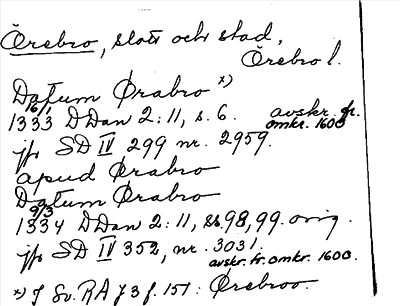 Örebro, slott och stad,
Örebro l.
Datum Ørabro x)
16/1
1333 DDan 2:11, s. 6. avskr. fr. omkr. 1600
jfr SD IV 299 nr. 2959.
apud Ørabro
Datum Ørabro
9/3
1334 DDan 2:11, ss. 98, 99. orig.
jfr SD IV 352, nr. 3031.
avskr. fr. omkr. 1600.
x) I Sv. RA J 3 f. 151: Örebroo.